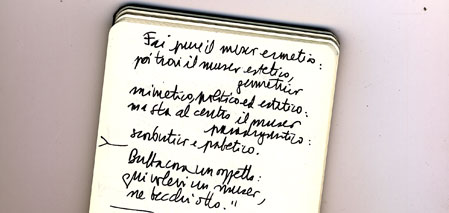 Fai pure il muser ermetico:
poi trovi il muser estetico,
geometrico
mimetico, politico ed estatico:
ma sta al centro il muser
scorbutico e patetico.
un oggetto:
qui volevi un muser,
ne becchi otto."